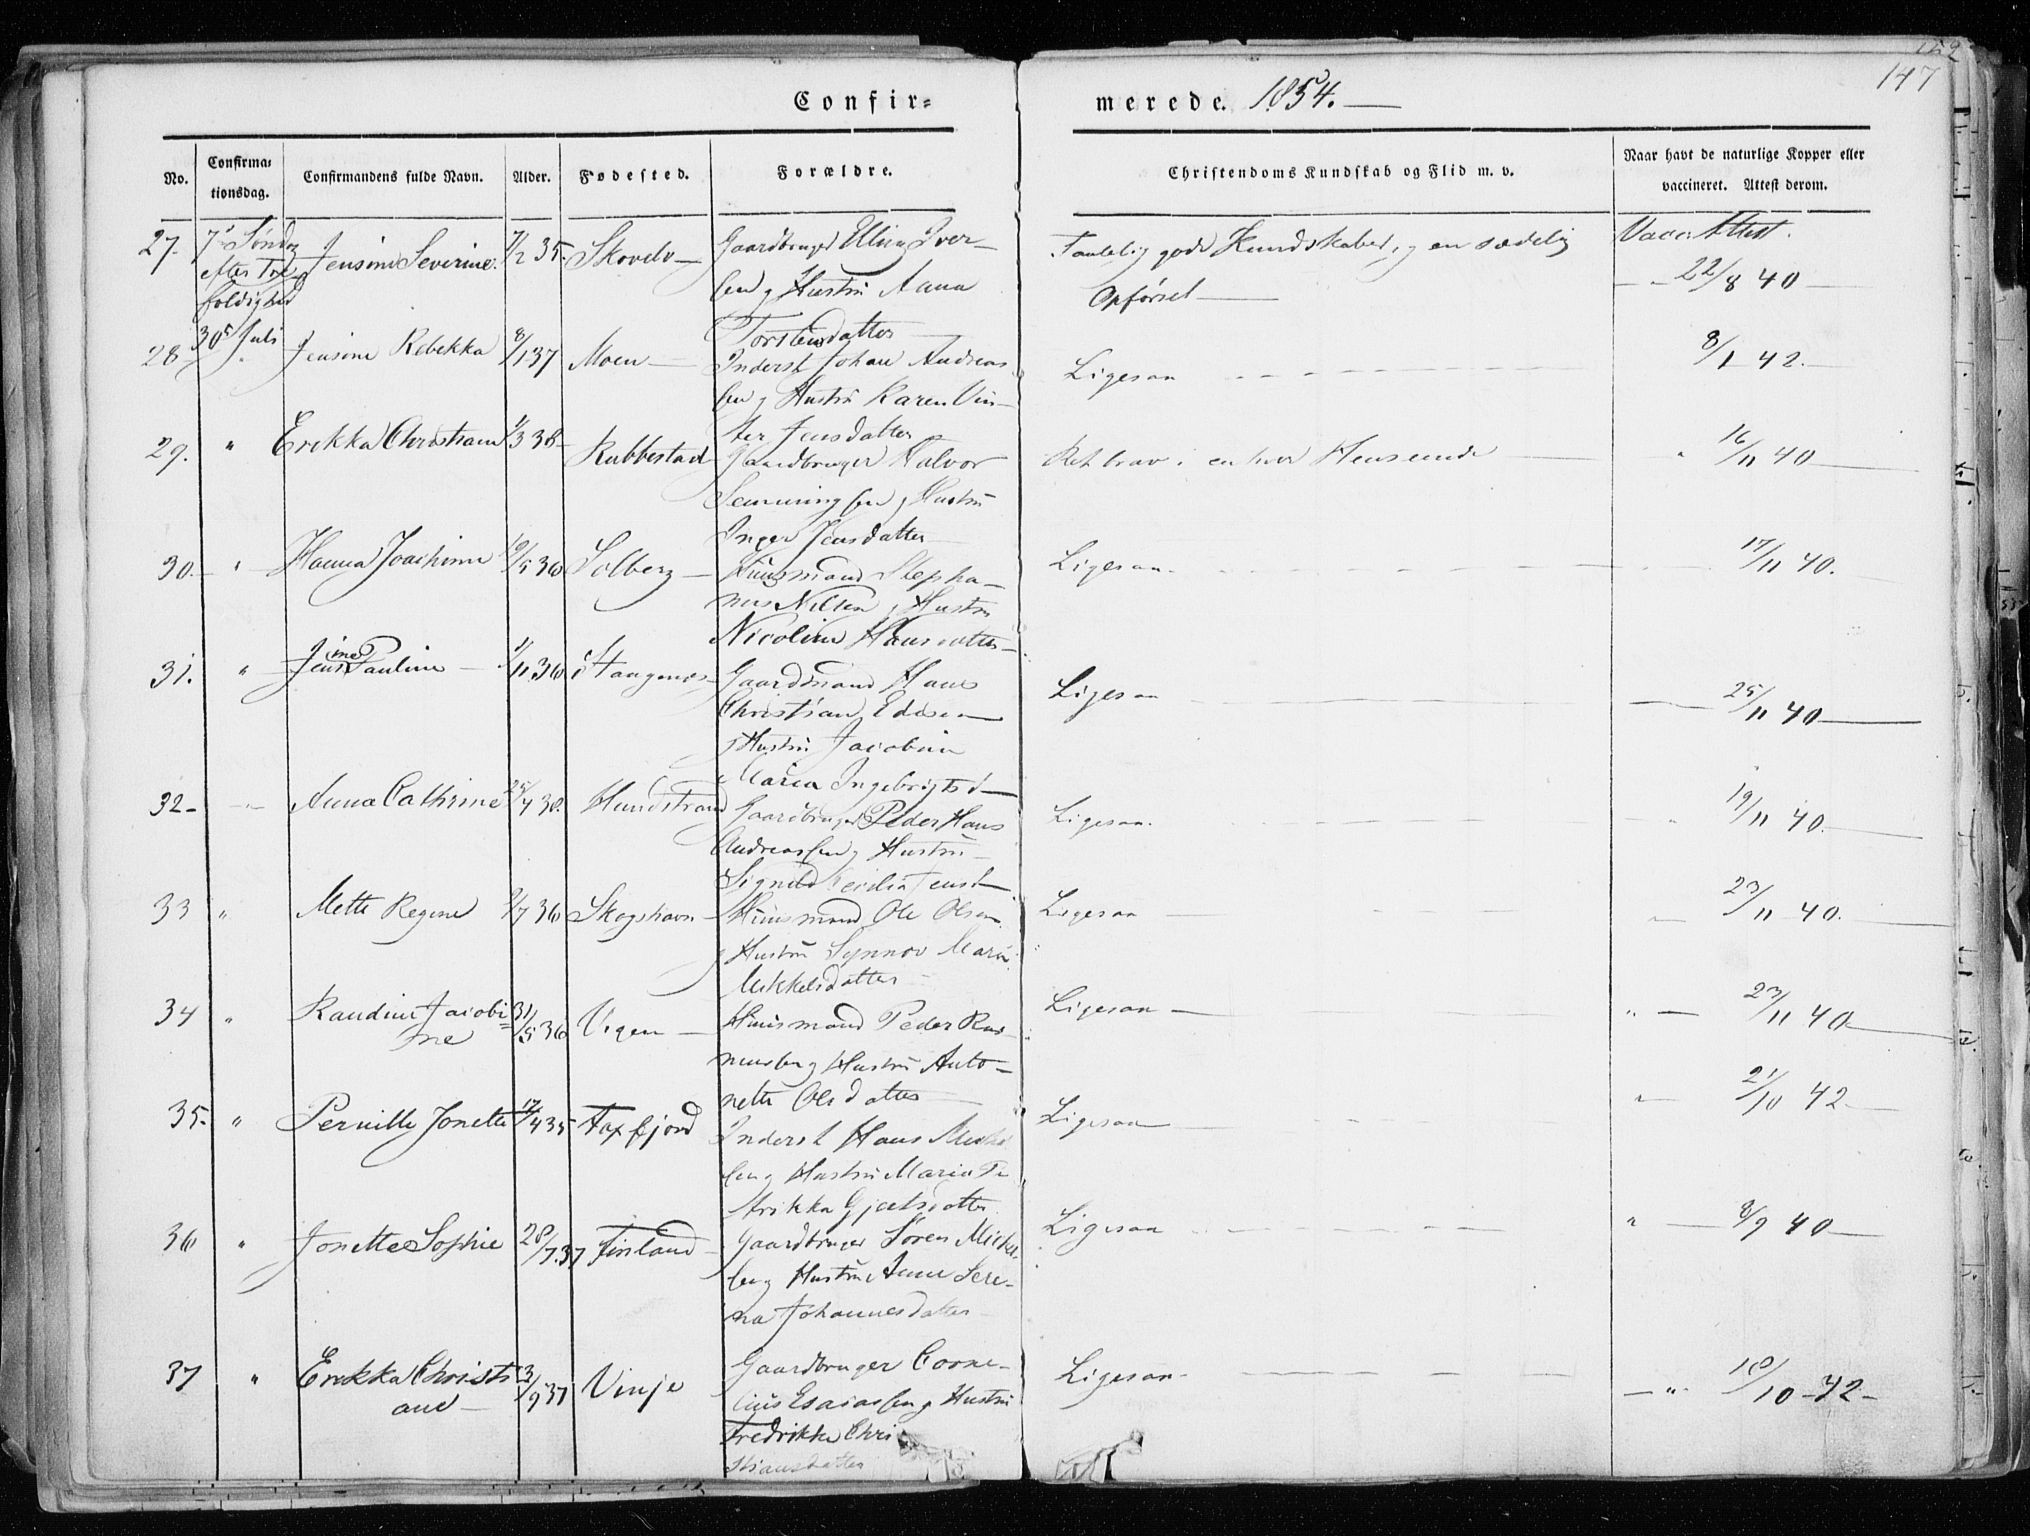 152
147
Confir= merede. 1854.
No. Confirma= tionsdag. Confirmandens fulde Navn. Alder. Fødested. Forældre. Christendoms Kundskab og Flid m. v. Naar havt de naturlige Kopper eller vaccineret. Attest derom.
27. 7de Søndag Jensine Severine 1/2 35. Skovelv Gaardbruger Elling Iver-
efter Tre sen og Hustru Anna
foldighed Torstensdatter
Taalelig gode Kundskaber, og en sædelig
Opførsel
Vacc. Attest.
22/8 40
30te Juli
28 " Jensine Rebekka 8/1 37 Moen Inderst Johan Andreas
sen og Hustru Karen Vin-
ter Jensdatter
Ligesaa 8/1 42.
29. " Erikka Christiane 1/3 38 Rubbestad Gaardbruger Halvor
Hemmingsen og Hustru
Inger Jensdatter
Ret brav i enhver Henseende " 16/11 40
30. " Hanna Joachime 19/5 36 Solberg Huusmand Stepha-
nus Nilsen og Hustru
Nicoline Hansdatter
Ligesaa. 17/11 40.
31. " Jensine Pauline 1/11 36 Stangenes Gaardmand Hans
Christian Edisen
og Hustru Jacobina
Maria Ingebrigtsd
Ligesaa 25/11 40
32 " Anna Cathrine 25/4 38. Hundstrand Gaardbruger Peder Hans
Andreassen og Hustru
Signild Cecilia Jensd
Ligesaa. 19/11 40.
33 " Mette Regine 2/7 36 Skogshavn Huusmand Ole Olsen
og Hustru Synnov Maria
Mikkelsdatter
Ligesaa " 23/11 40.
34 " Randine Jacobi= 31/5 36 Vigen Huusmand Peder Ras
ne musen og Hustru Anto-
nette Olsdatter
Ligesaa " 23/11 40
35. " Pernille Jonette 17/4 35 Faxfjord Inderst Hans Mich
sen og Hustru Maria Pe
trikka Gjertsdatter
Ligesaa " 21/10 42
36 " Jonette Sophie 28/7 37 Finland Gaardbruger Søren Mickel
sen og Hustru Anne Sere-
na Johannesdatter
Ligesaa " 8/9 40
37 " Erikka Christi 13/9 37 Vinje Gaardbruger Corne-
ane lius Esaiassen og Hustru
Fredrikka Chri
stiansdatter
Ligesaa. " 10/10 42